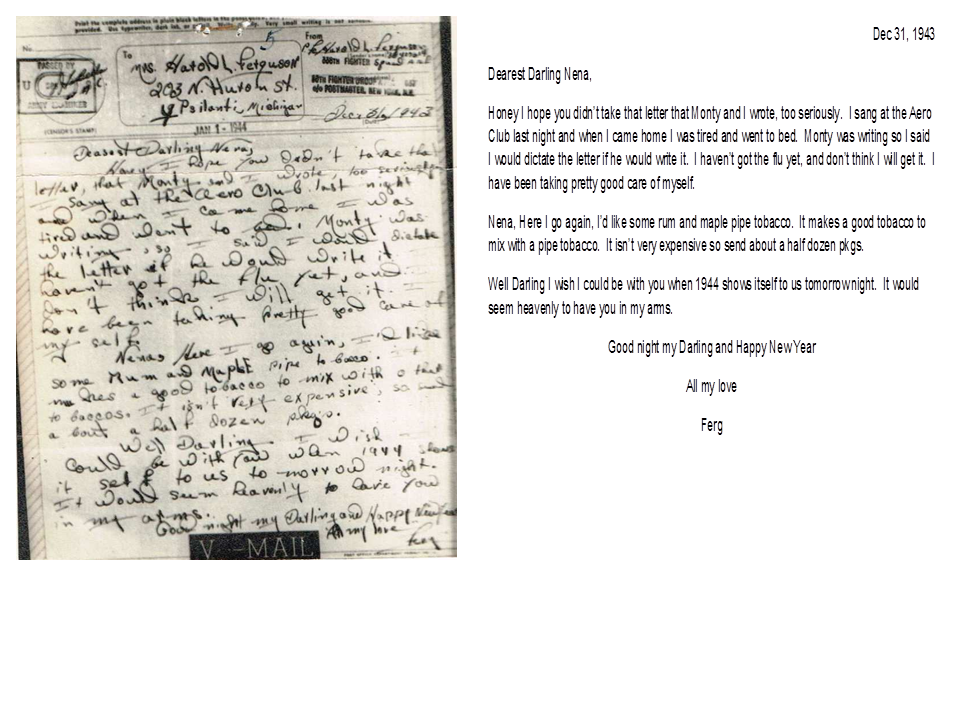 Print the complete address in plain block letters in the
provided. Use typewriter, dark ink, or Very small writing is not
No.
To
From
5
PASSED BY
U
S
ARMY EXAMINER
(CENSOR'S STAMP)
Mrs. Harold L. Ferguson
203 N. Huron St.
Ypsilanti, Michigan
Harold L. Ferguson
FIGHTER
FIGHTER GROUP
c/o POSTMASTER, NEW YORK, N.Y.
Dec 31, 1943
(Date)
JAN 1 - 1944
Dearest Darling Nena,
Honey I hope you didn't take the
letter, that Monty and I wrote, too seriously
I sang at the Aero Club last night
and when I came home I was
tired and went to bed. Monty was
writing, so I said I would dictate
the letter if he would write it. I
haven't got the flu yet, and
don't think I will get it. I
have been taking pretty good care of
my self.
Nena, Here I go again, I'd like
some Rum and Maple pipe to bacco. It
makes a good tobacco to mix with
to baccos. It isn't very expensive, so send
a bout a half dozen pkgs.
Well Darling I wish I
could be with you when 1944 shows
it self to us to morrow night.
It would seem heavenly to have you
in my arms.
Good night my Darling and Happy New Year
All my love
Ferg
V - MAIL
Dec 31, 1943
Dearest Darling Nena,
Honey I hope you didn't take that letter that Monty and I wrote, too seriously. I sang at the Aero
Club last night and when I came home I was tired and went to bed. Monty was writing so I said
I would dictate the letter if he would write it. I haven't got the flu yet, and don't think I will get it. I
have been taking pretty good care of myself.
Nena, Here I go again, I'd like some rum and maple pipe tobacco. It makes a good tobacco to
mix with a pipe tobacco. It isn't very expensive so send about a half dozen pkgs.
Well Darling I wish I could be with you when 1944 shows itself to us tomorrow night. It would
seem heavenly to have you in my arms.
Good night my Darling and Happy New Year
All my love
Ferg